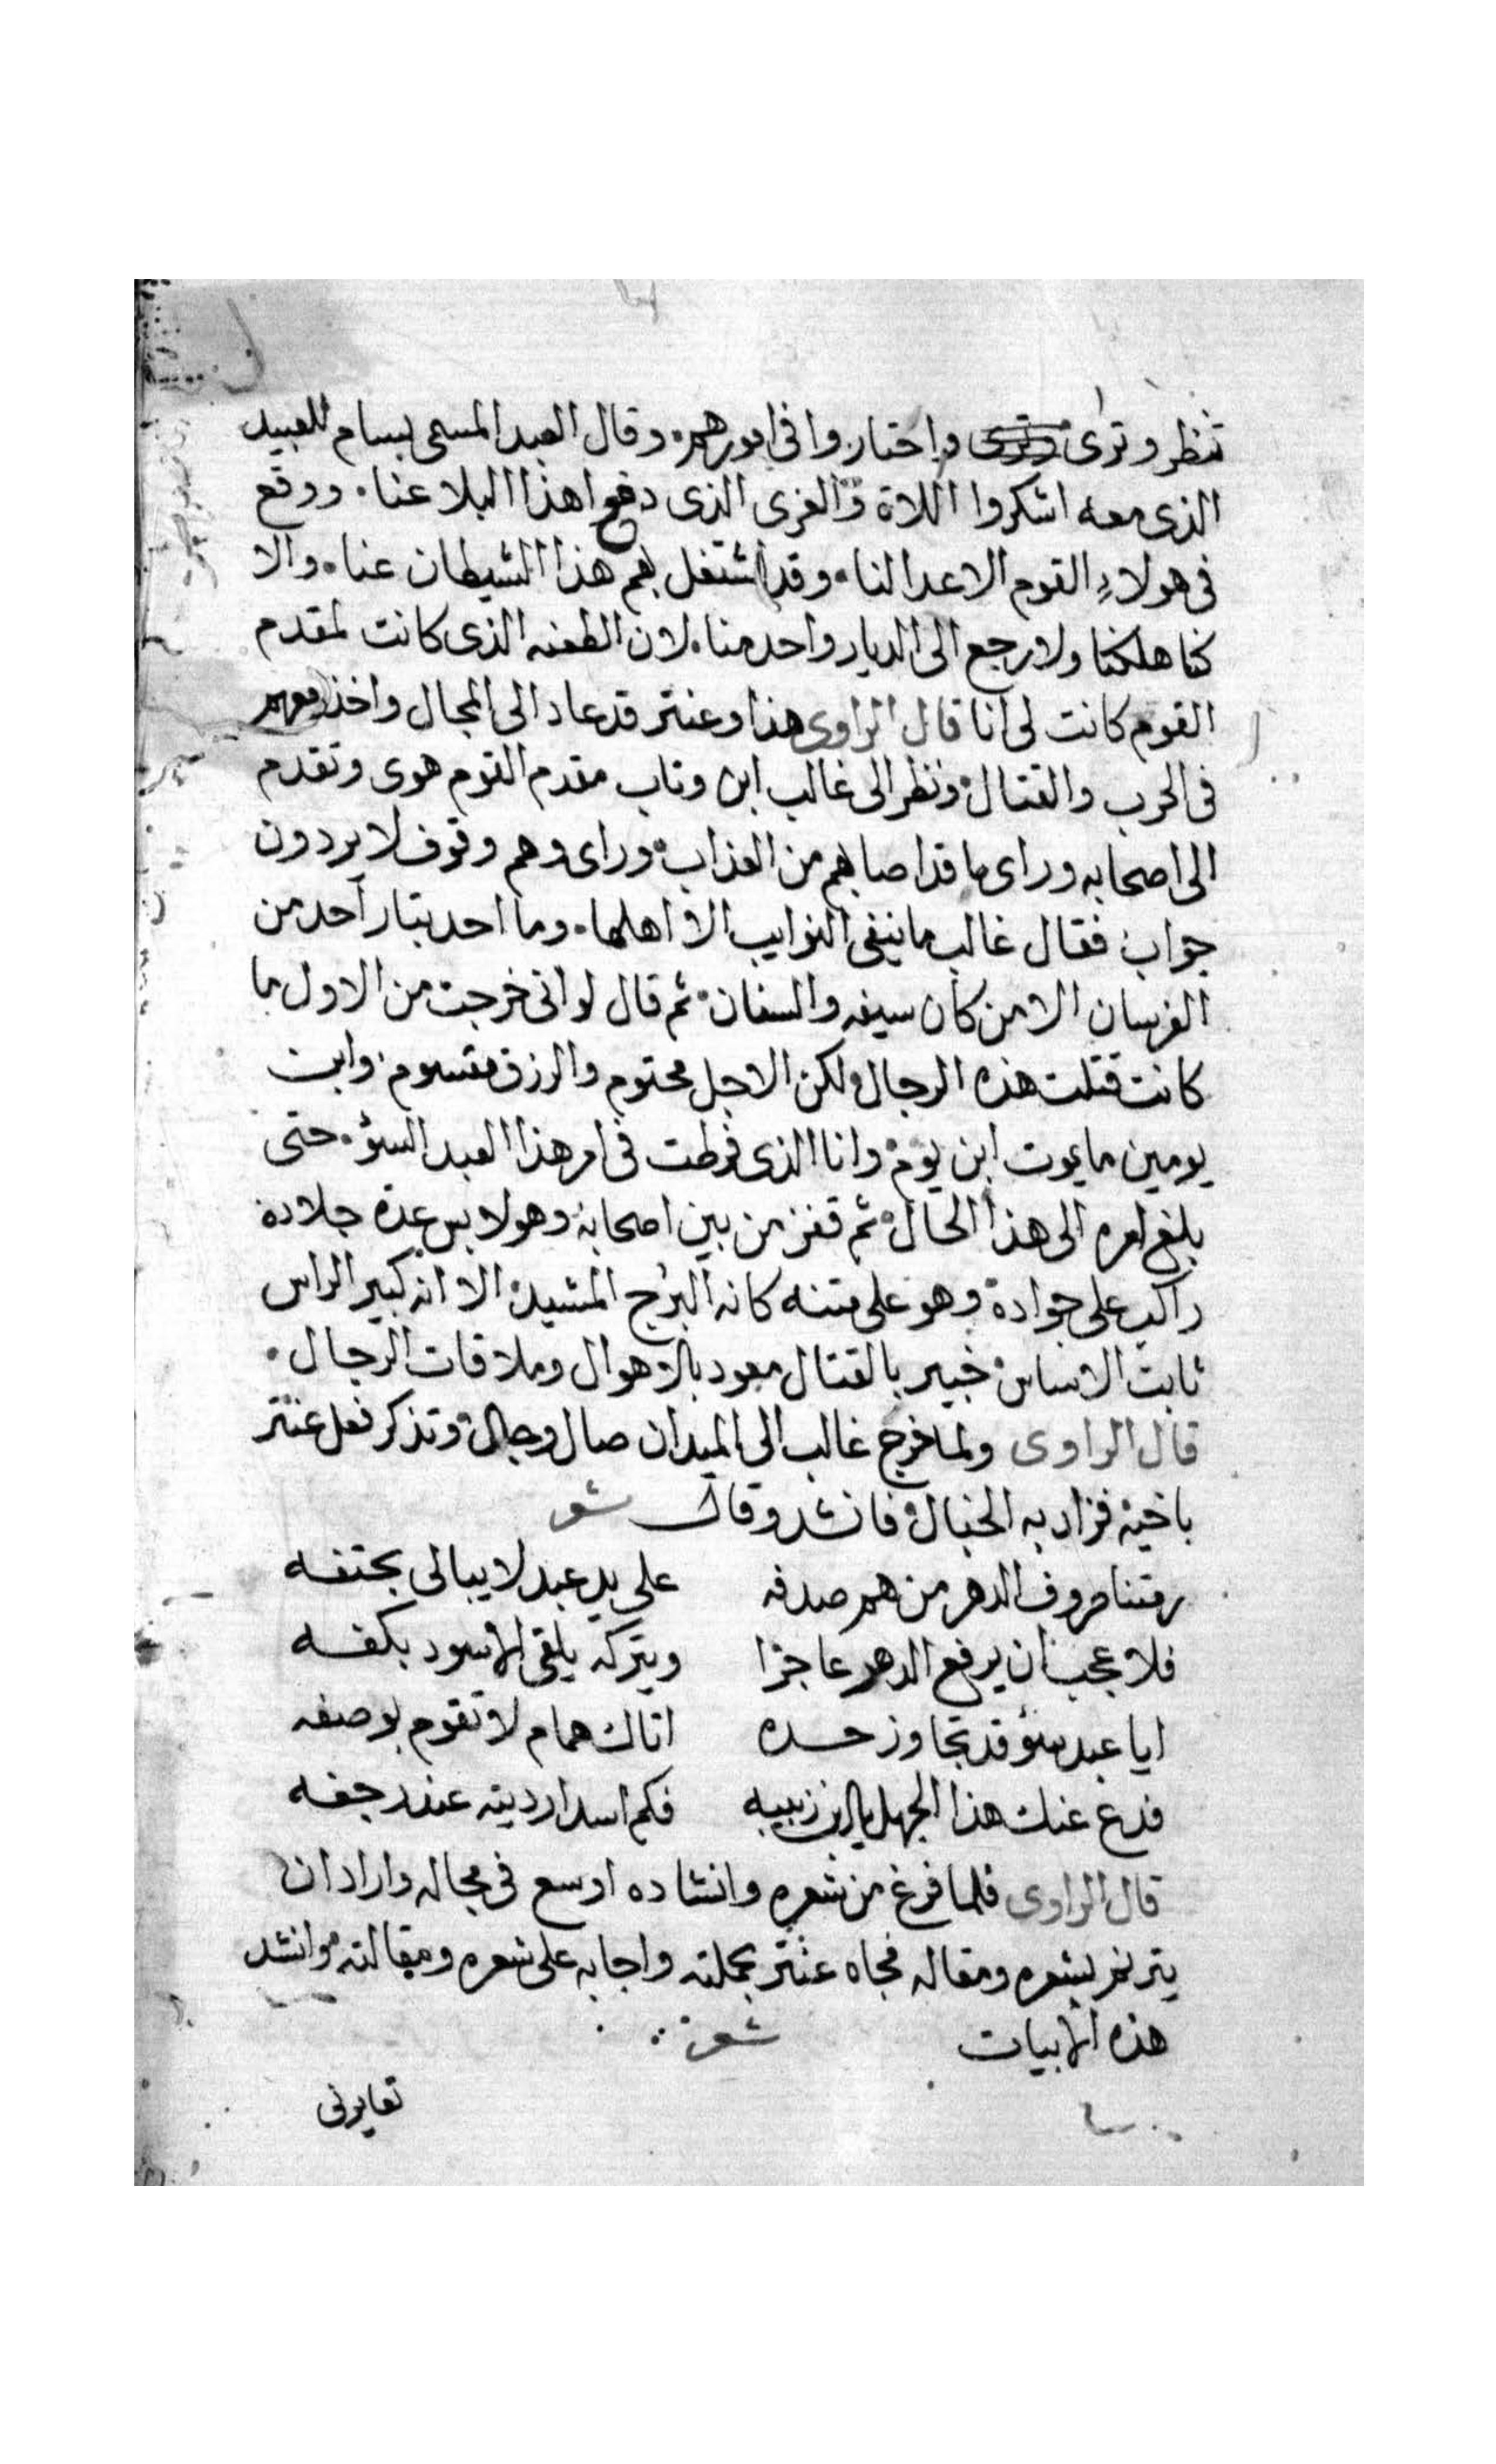 تنظر وترى واحتاروا فى امورهم وقال العبد المسمى بسام للعبيد
الذى معه اشكروا اللاة والعزى الذى دفع اهذا البلا عنا ووقع
فى هولاء القوم الاعدا لنا وقد اشتغل بهم هذا الشيطان عنا والا
كنا هلكنا ولا رجع الى الديار واحد منا لان الطعنه الذى كانت لمقدم
القوم كانت لى انا قال الراوى هذا وعنتر قد عاد الى المجال واخذ معهم
فى الحرب والقتال ونظر الى غالب ابن وتاب مقدم القوم هوى وتقدم
الى اصحابه وراى ما قد اصابهم من العذاب وراى وهم وقوف لا يردون
جواب فقال غالب ما ينفى النوايب الا اهلها وما احد بتار احد من
الفرسان الا من كان سيفه والسنان ثم قال لو انى خرجت من الاول ما
كانت قتلت هذه الرجال ولكن الاجل محتوم والرزق مقسوم وابن
يومين ما يموت ابن يوم وانا الذى فرطت فى امر هذا العبد السؤ حتى
بلغ امره الى هذا الحال ثم قفز من بين اصحابه وهو لابس عدة جلاده
راكب على جوادة وهو على متنه كانه البرج المشيد الا انه كبير الراس
ثابت الاساس خبير بالقتال معود بالاهوال وملاقات الرجال
قال الراوى ولما خرج غالب الى الميدان صال وجال وتذكر فعل عنتر
باخيه فزاد به الخبال فانشد وقال شعر
رمتنا صروف الدهر من هم صدفه على يد عبد لا يبالى بحتفه
فلا عجب ان يرفع الدهر عاجزا ويتركه يلقى الاسود بكفه
ايا عبد سؤ قد تجاوز حده اتاك همام لا تقوم بوصفه
فدع عنك هذا الجهل يابن زبيبه فكم اسد ارديته عند رجفه
قال الراوى فلما فرغ من شعره وانشاده اوسع فى مجاله واراد ان
يترنم بشعره ومقاله فجاه عنتر بجملته واجابه على شعره ومقالته وانشد
هذه الابيات شعر
تعايرنى